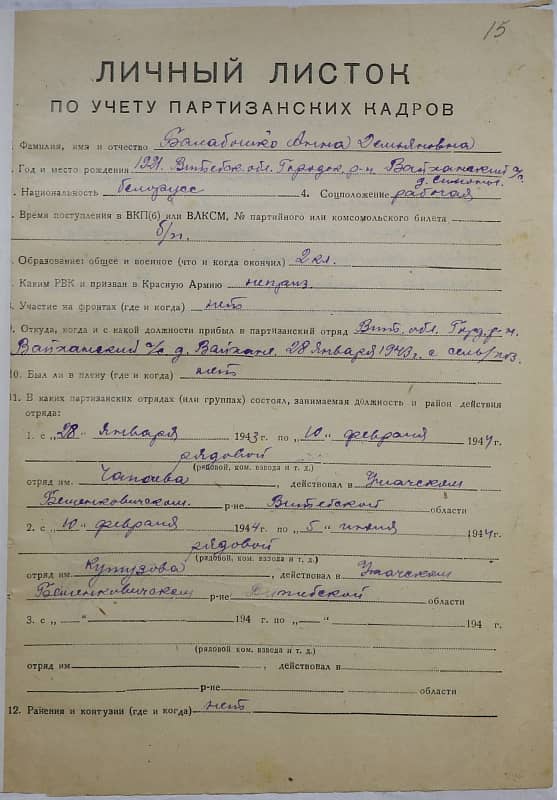 15
ЛИЧНЫЙ ЛИСТОК
ПО УЧЕТУ ПАРТИЗАНСКИХ КАДРОВ
. Фамилия, имя и отчество Балабошко Анна Демьяновна
. Год и место рождения 1921. Витебск. обл. Городок. р-н Вайханский с/с
д. Симоны.
. Национальность белорусс 4. Соцположение рабочая
. Время поступления в ВКП(б) или ВЛКСМ, № партийного или комсомольского билета
б/п.
. Образование: общее и военное (что и когда окончил) 2 кл.
. Каким РВК и призван в Красную Армию непризв.
. Участие на фронтах (где и когда) нет
9. Откуда, когда и с какой должности прибыл в партизанский отряд Вит. обл. Город. р-н.
Вайханский с/с д. Вайхане. 28 Января 1943 г. с
10. Был ли в плену (где и когда) нет
11. В каких партизанских отрядах (или группах) состоял, занимаемая должность и район действия
отряда:
1. с „28" января 1943 г. по „10" февраля 1944 г.
рядовой
(рядовой, ком. взвода и т. д.)
отряд им. Чапаева, действовал в Ушачском
Бешенковичском. р-не Витебской области
2. с „10" февраля 1944 г. по „5" июня 1944 г.
рядовой
(рядовой, ком. взвода и т. д.)
отряд им. Кутузова, действовал в Ушачском
Бешенковичском р-не Витебской области
3. с „—" 194 г. по „—" 194 г.
(рядовой, ком. взвода и т. д.)
отряд им , действовал в
р-не области
12. Ранения и контузии (где и когда) нет